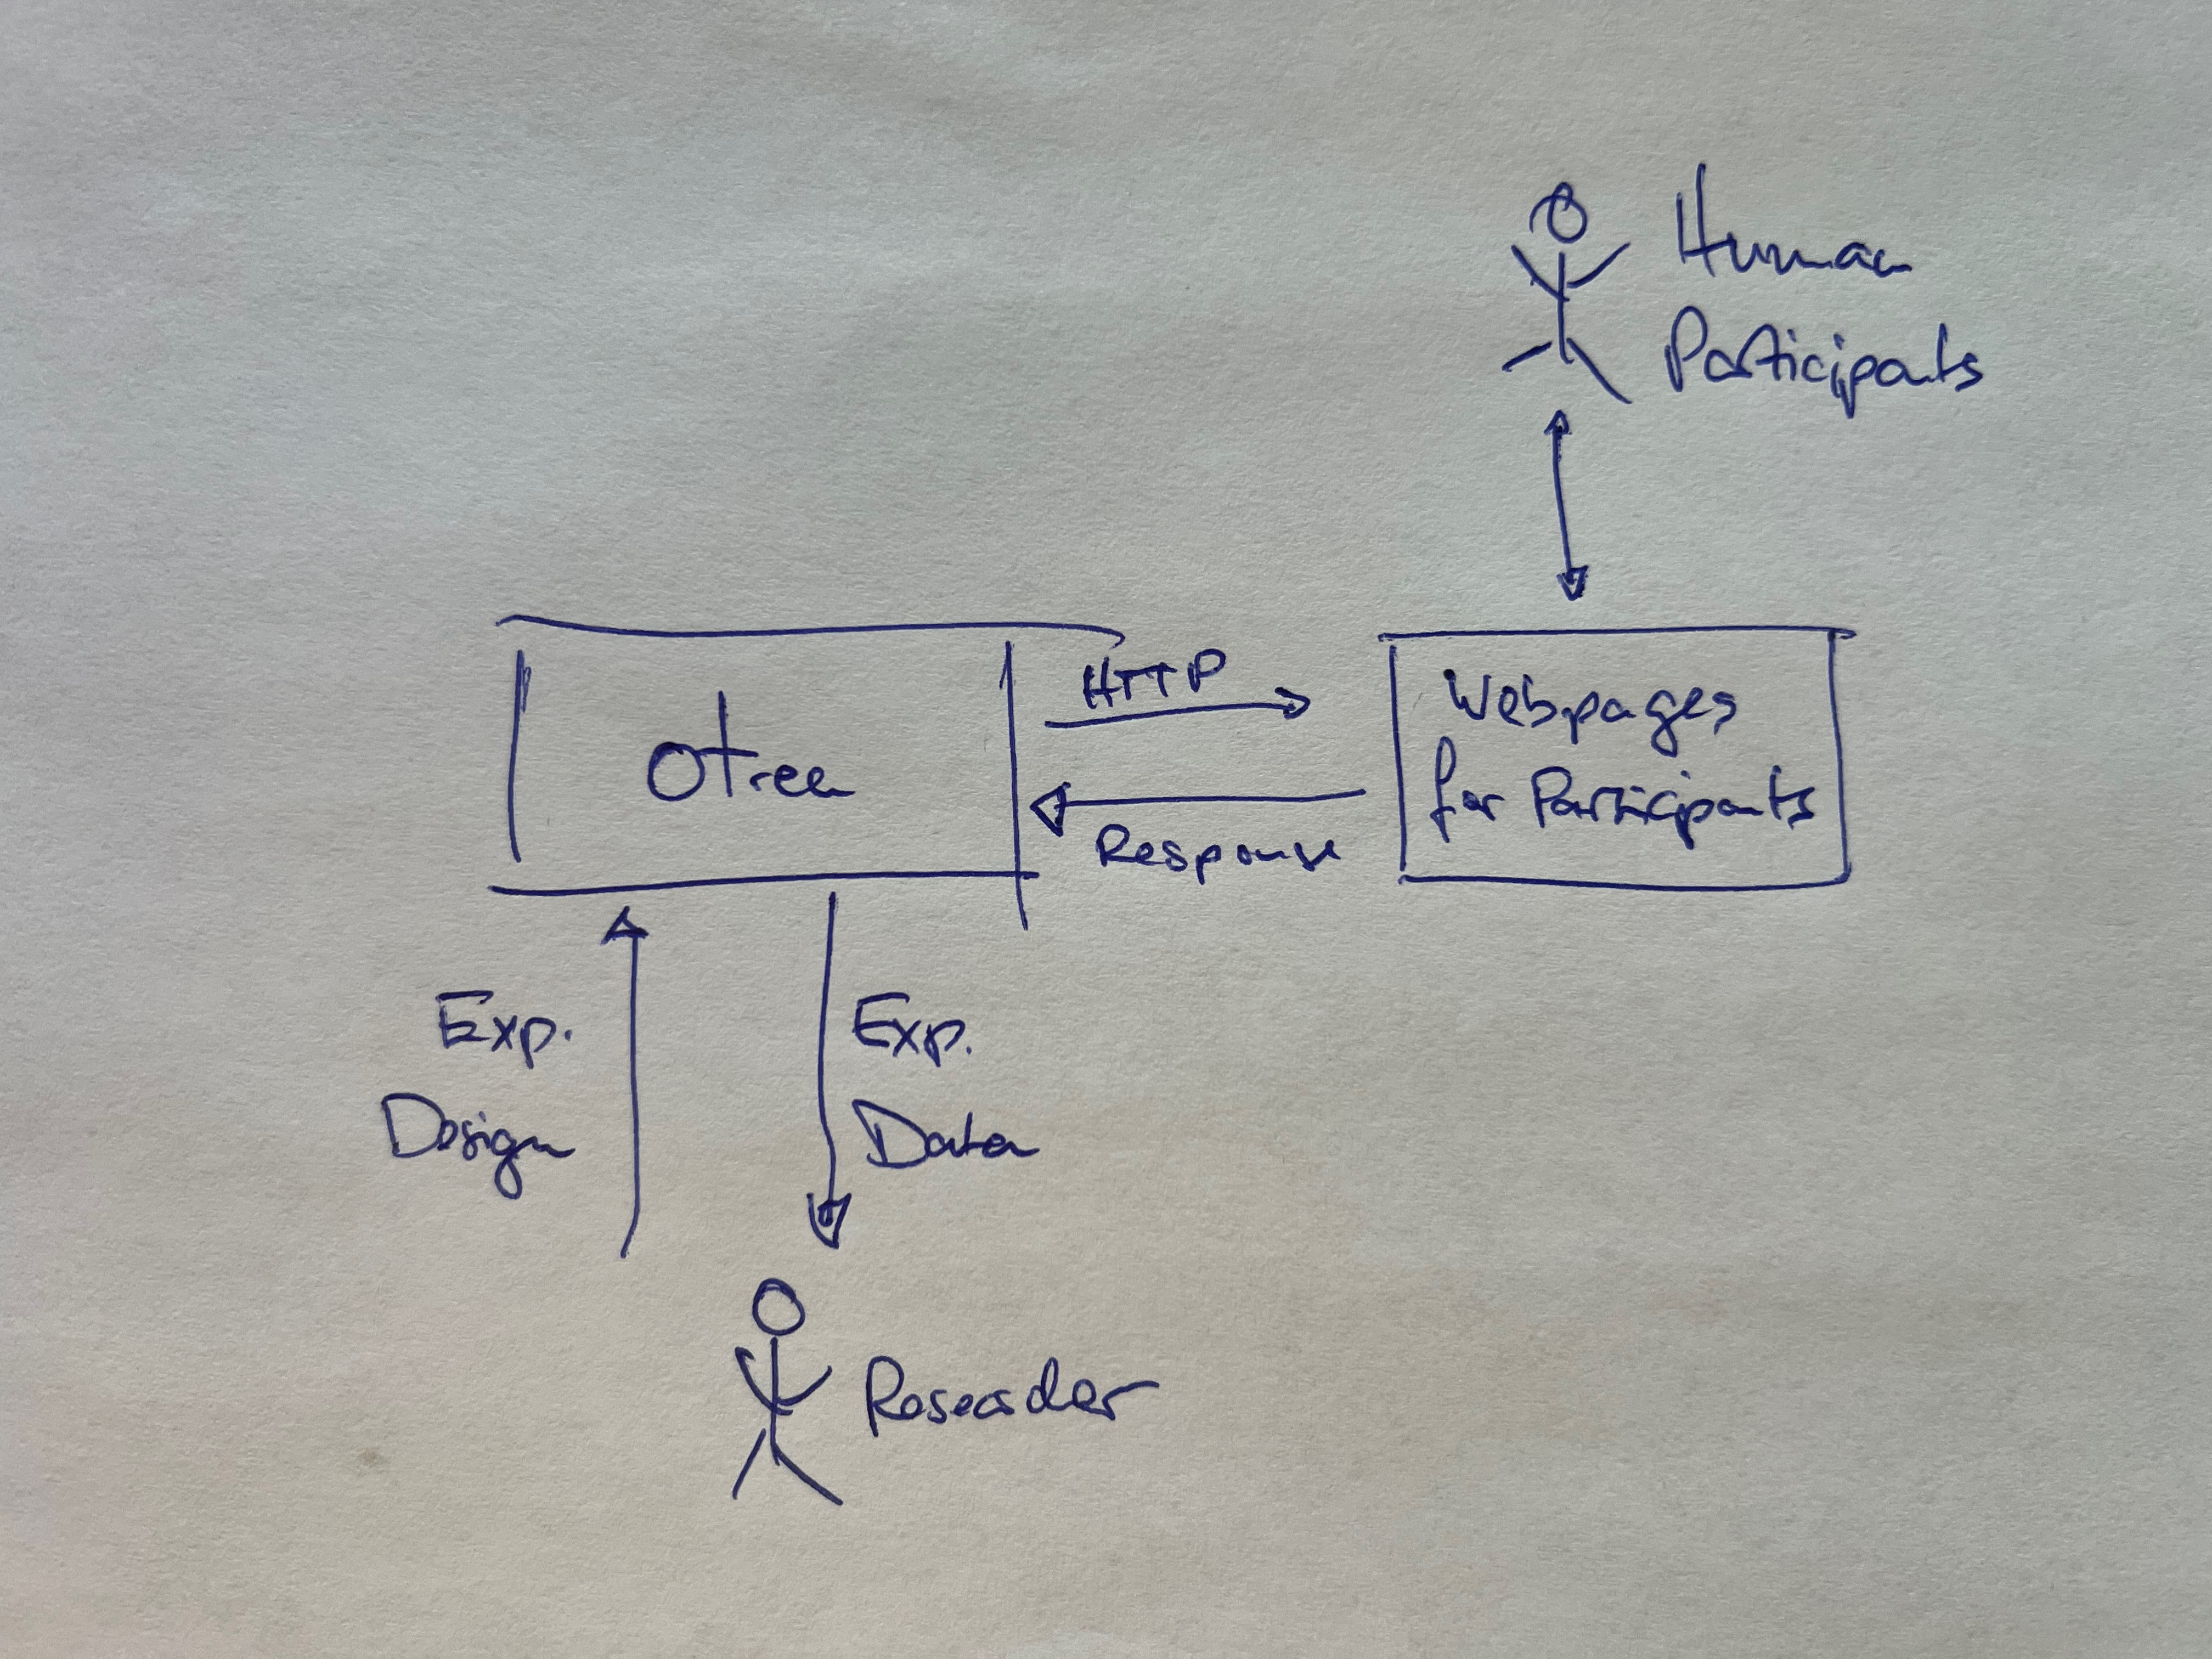 Human
Participants
HTTP
oTree
Response
Webpages
for Participants
Exp.
Design
Exp.
Data
Researcher